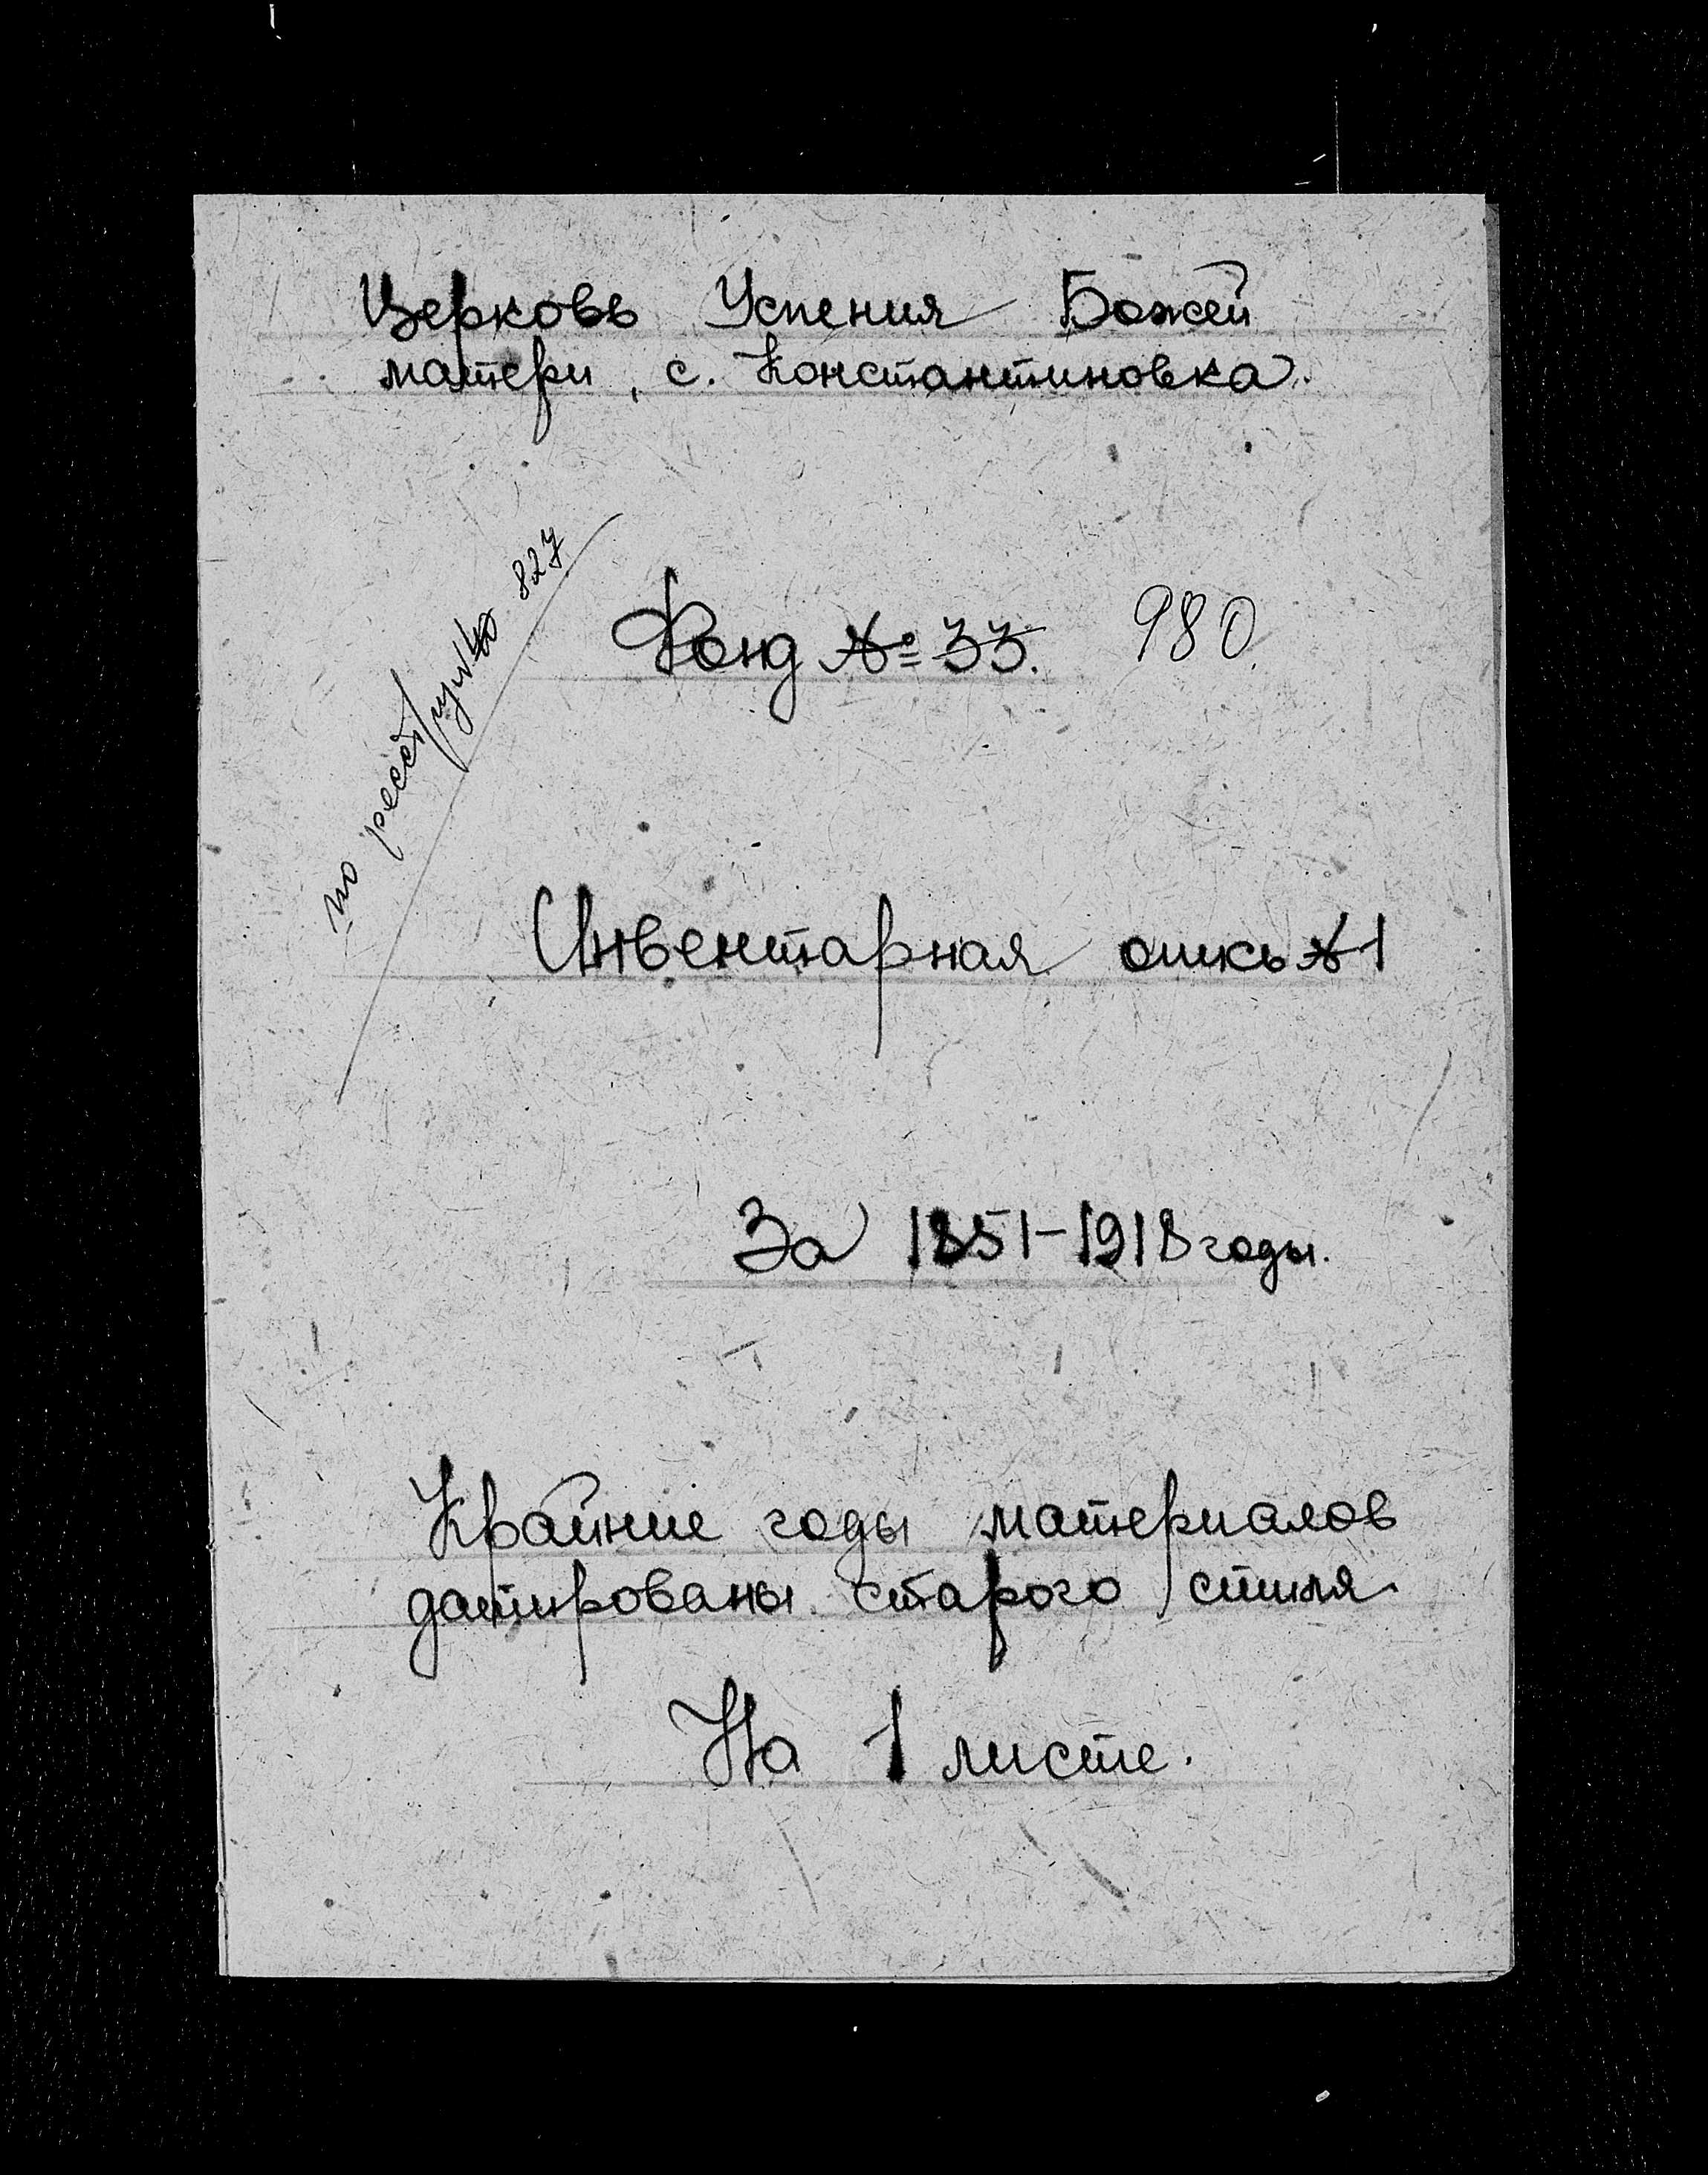 Церковь Успения Божей
матери, с. Константиновка.
по реестру № 827
Фонд № 33. 980.
Инвентарная опись № 1
За 1851-1918 годы.
Крайние годы материалов
датированы старого стиля.
На 1 листе.